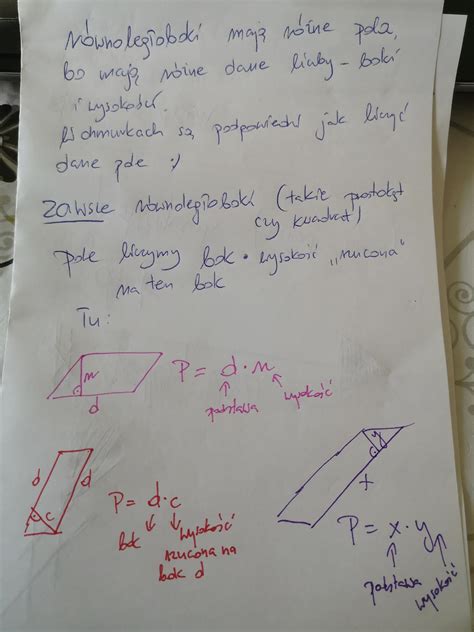 Równoległoboki mają różne pola,
bo mają różne dane liczby - boki
i wysokości.
W chmurkach są podpowiedzi jak liczyć
dane pole :)
Zawsze równoległoboki (także prostokąt
czy kwadrat)
pole liczymy bok · wysokość „rzucona"
na ten bok
Tu:
n
d
P = d · n
podstawa
wysokość
d
d
c
P = d · c
bok
wysokość
rzucona na
bok d
y
x
P = x · y
podstawa
wysokość